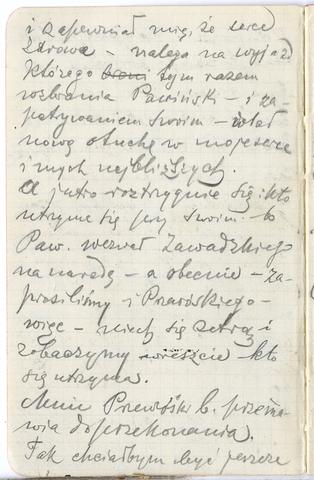 i zapewniał mię, że serce
zdrowe – nalega na wyjazd
którego broni tym razem
wzbrania Pawiński – i za-
patrywaniem swoim – wlał
nową otuchę w moje serce
i mych najbliższych.
A jutro roztrzygnie się: kto
utrzyma się przy swoim – bo
Paw. wezwał Zawadzkiego
na naradę – a obecnie – za-
prosiliśmy i Prawdzkiego –
więc – niech się zetrą i
zobaczymy wreszcie kto
się utrzyma.
Mnie b. przema-
wia do przekonania.
Tak chciałbym być jeszcze